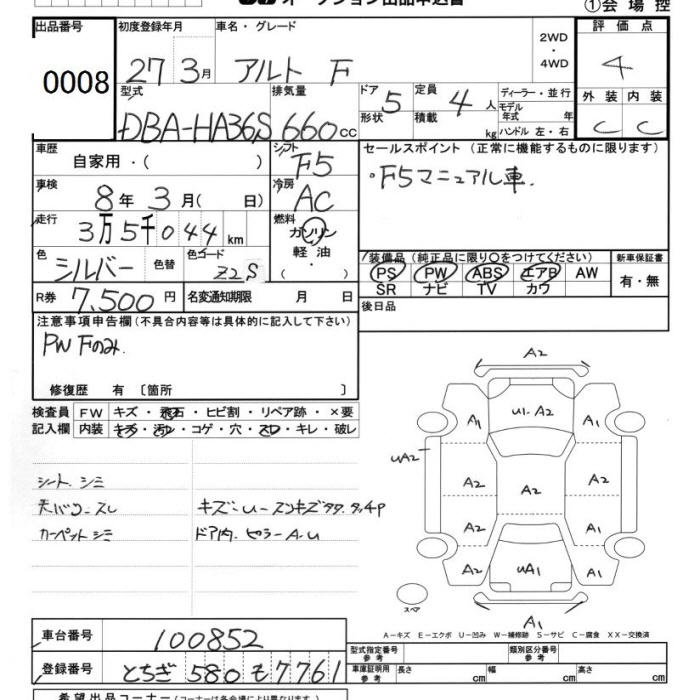 オークション出品申込書
①会場控
出品番号
0008
初度登録年月
27 3月
車名・グレード
アルト F
2WD
・
4WD
評価点
4
型式
DBA-HA36S
排気量
660cc
ドア 5
形状
定員 4人
積載 kg
ディーラー・並行
モデル年式 年
ハンドル 左・右
外装 内装
C C
車歴
自家用・( )
シフト
F5
セールスポイント(正常に機能するものに限ります)
・F5マニュアル車.
車検
8年 3月( 日)
冷房
AC
走行
3万5千044km
燃料
ガソリン
軽油
・( )
色
シルバー
色替
色コード
Z2S
装備品(純正品に限り○をつけてください)
PS PW ABS エアB AW
SR ナビ TV カワ
新車保証書
有・無
R券 7,500円
名変通知期限 月 日
後日品
注意事項申告欄(不具合内容等は具体的に記入して下さい)
PW Fのみ.
修復歴 有〔箇所 〕
検査員 FW キズ・飛石・ヒビ割・リペア跡・×要
記入欄 内装 キズ・汚レ・コゲ・穴・スレ・キレ・破レ
シート シミ
天バリ スレ
カーペット シミ
ドア内・ピラー A・U
A2
A1
U1・A2
A1
UA2
A2
A2
A2
A2
A1
A2
UA1
A1
スペア
A1
A-キズ E-エクボ U-凹み W-補修跡 S-サビ C-腐食 XX-交換済
車台番号 100852
型式指定番号
参考
類別区分番号
参考
登録番号 とちぎ 580 も 7761
車庫証明用
参考
長さ cm 幅 cm 高さ cm
希望出品コーナー(コーナーは各会場により異なります)